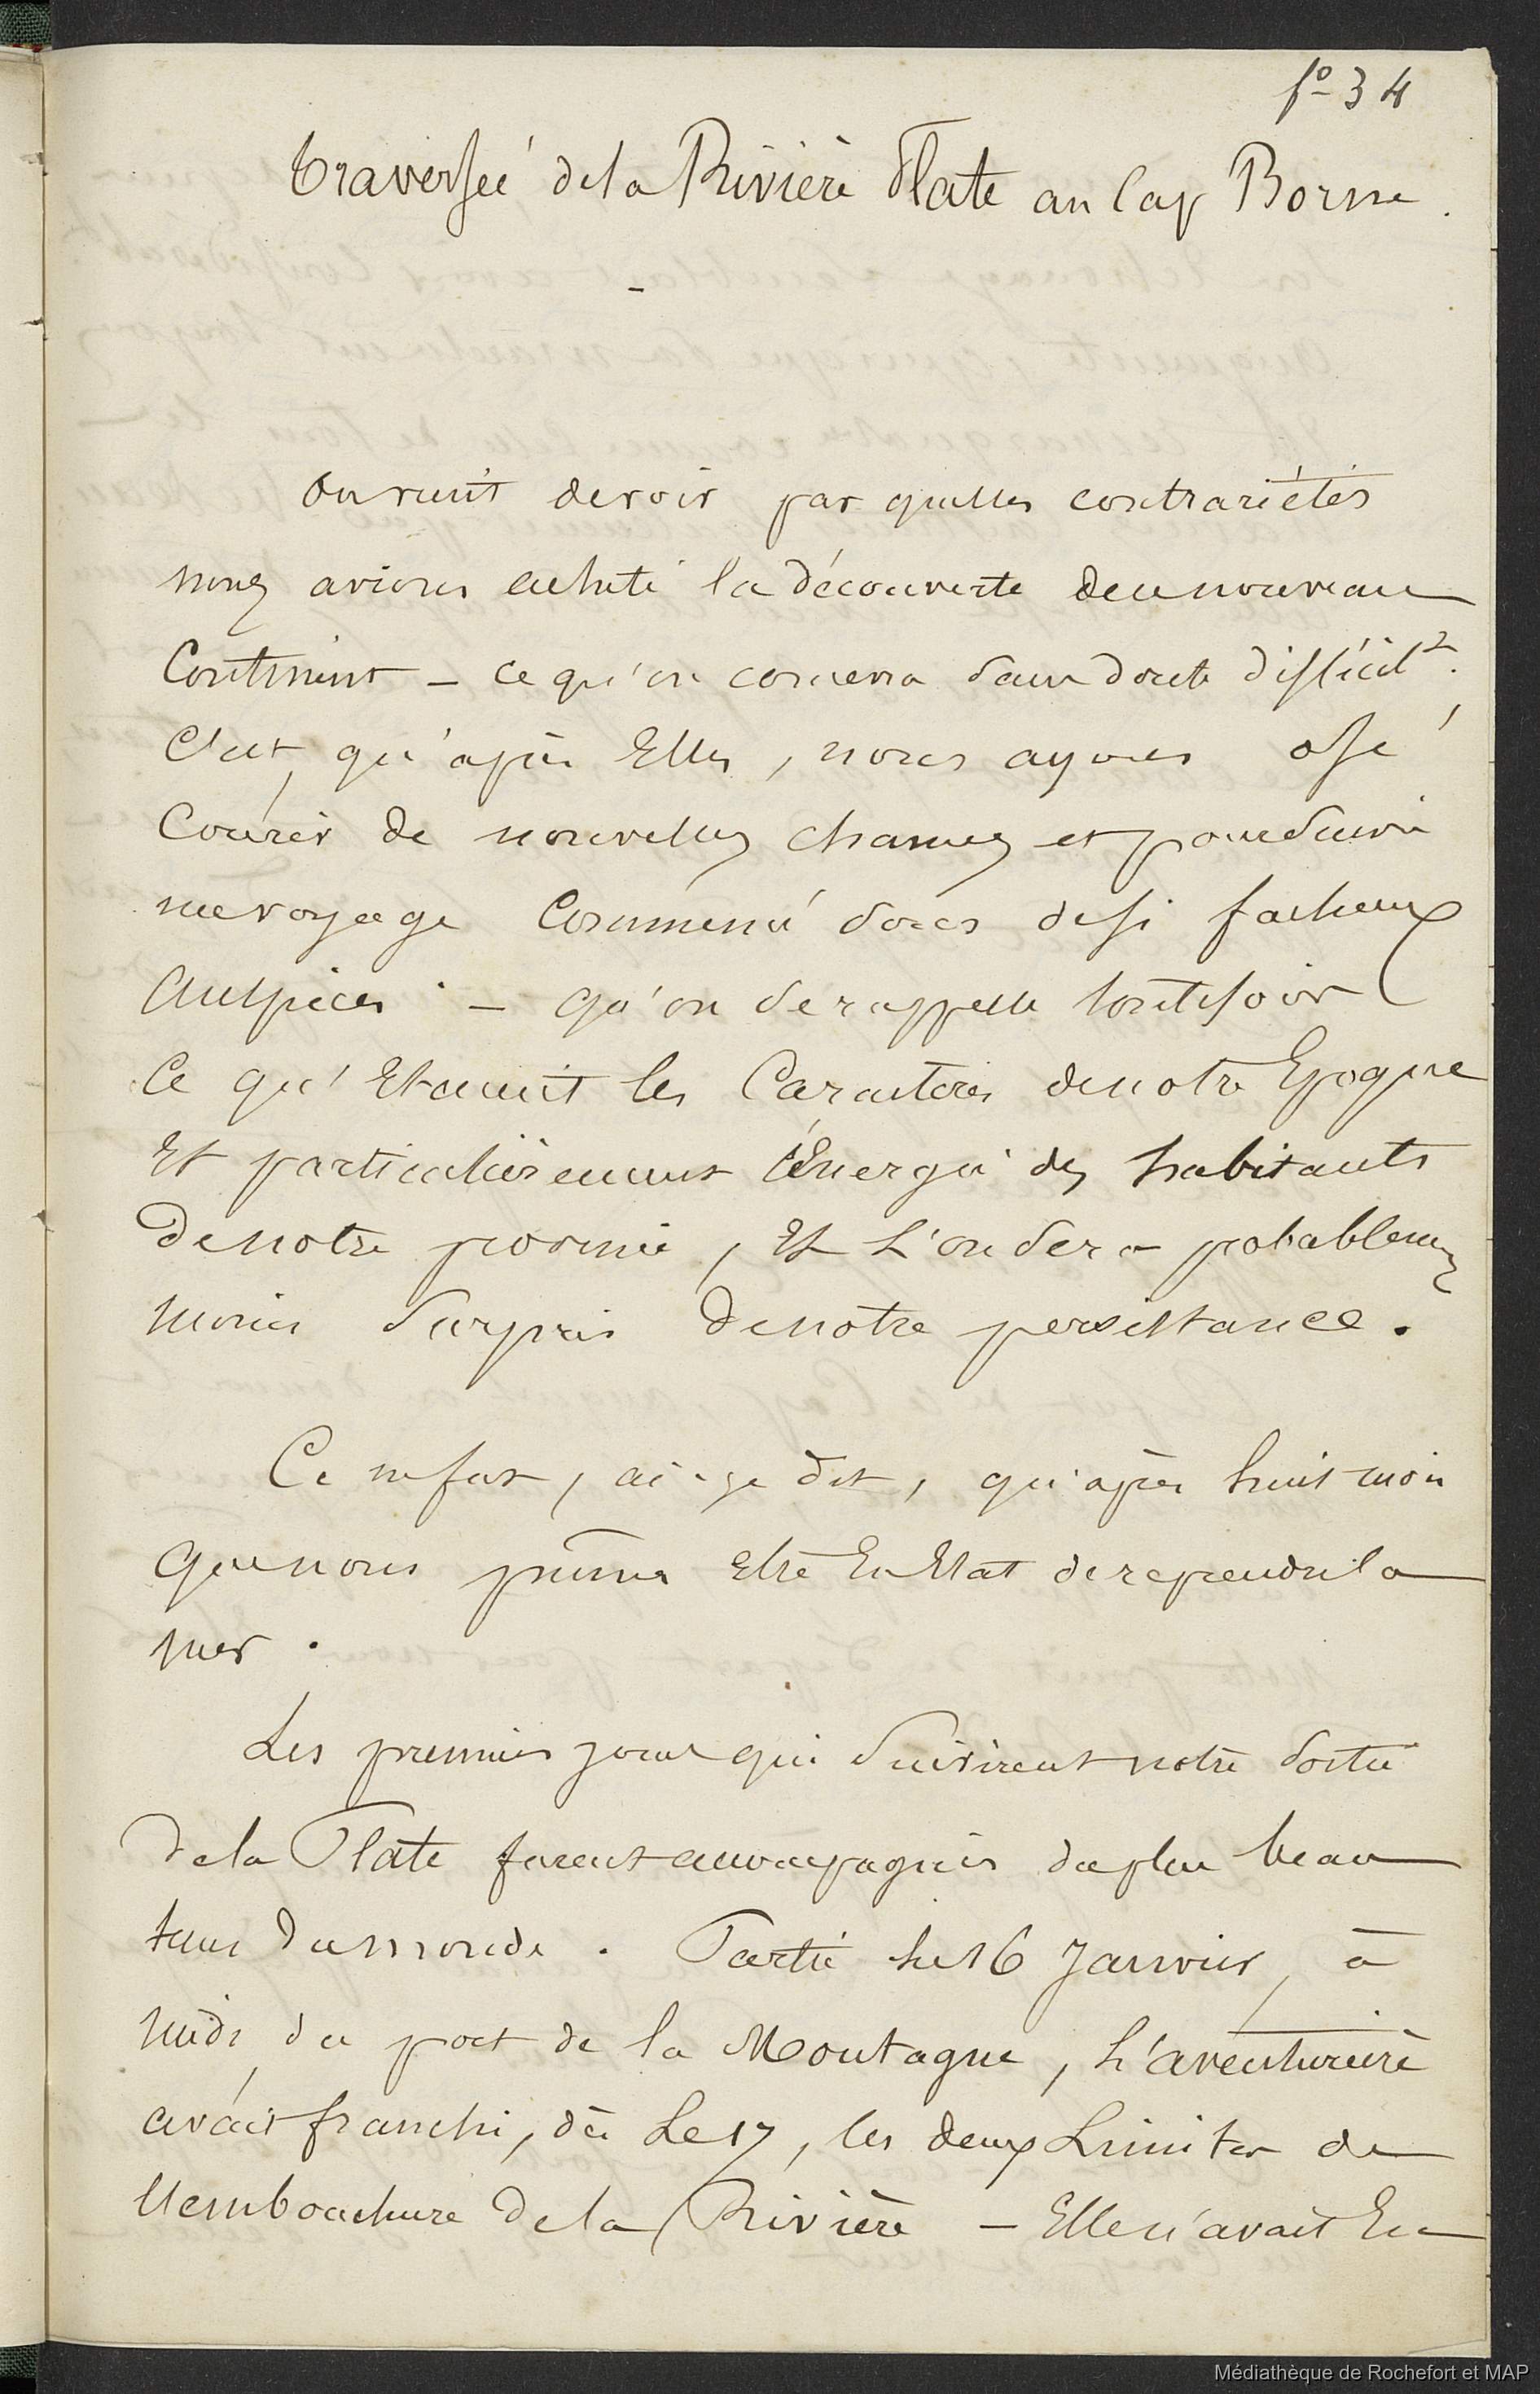 fo 34
Traversée de la Rivière Plate au Cap Borne.
-
On vient de voir par quelles contrariétés
nous avions acheté la découverte de ce nouveau
Continent - ce qu'on concevra sans doute difficilt.
C'est, qu'après Elles, nous ayons osé
Courir de nouvelles chances et poursuivre
un voyage Commencé sous de si facheux
Auspices. - qu'on se rappelle toutefois
Ce qu'Etaient les Caracteres de notre Epoque
Et particulièrement l'Energie des habitants
De notre province, Et l'on sera probablemt
moins surpris De notre persistance.
Ce ne fut, ai-je dit, qu'après huit mois
Que nous pûmes Etre En Etat de reprendre la
mer.
Les premiers jours qui suivirent notre sortie
De la Plate furent accompagnés du plus beau
tems Du monde. Partie le 16 Janvier, à
midi, du port de la Montagne, L'aventurière
avait franchi, dès Le 17, les deux Limites de
L'embouchure De la Rivière - Elle n'avait En
Médiathèque de Rochefort et MAP